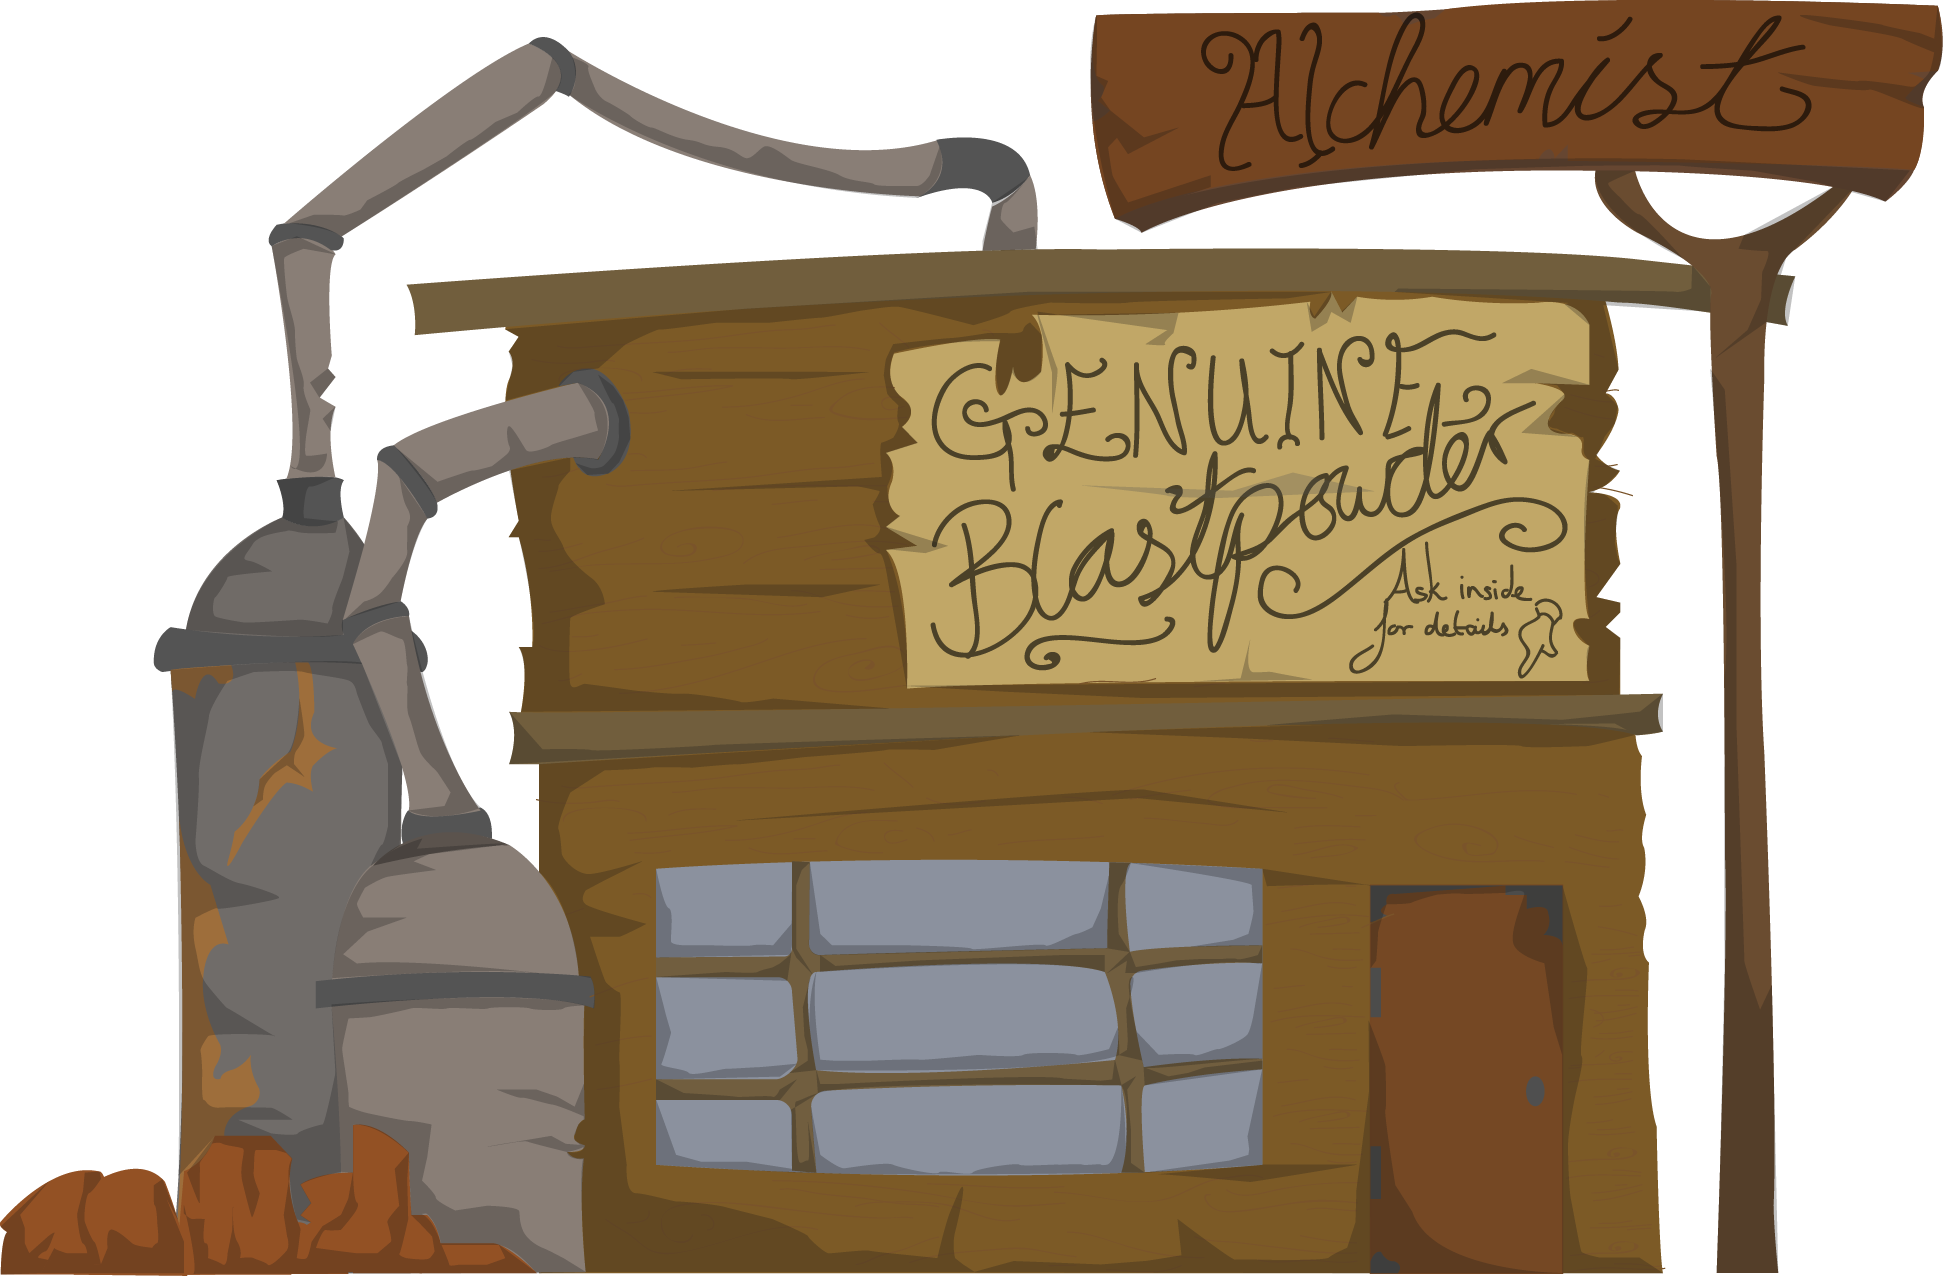 Alchemist
GENUINE
Blastpowder
Ask inside
for details